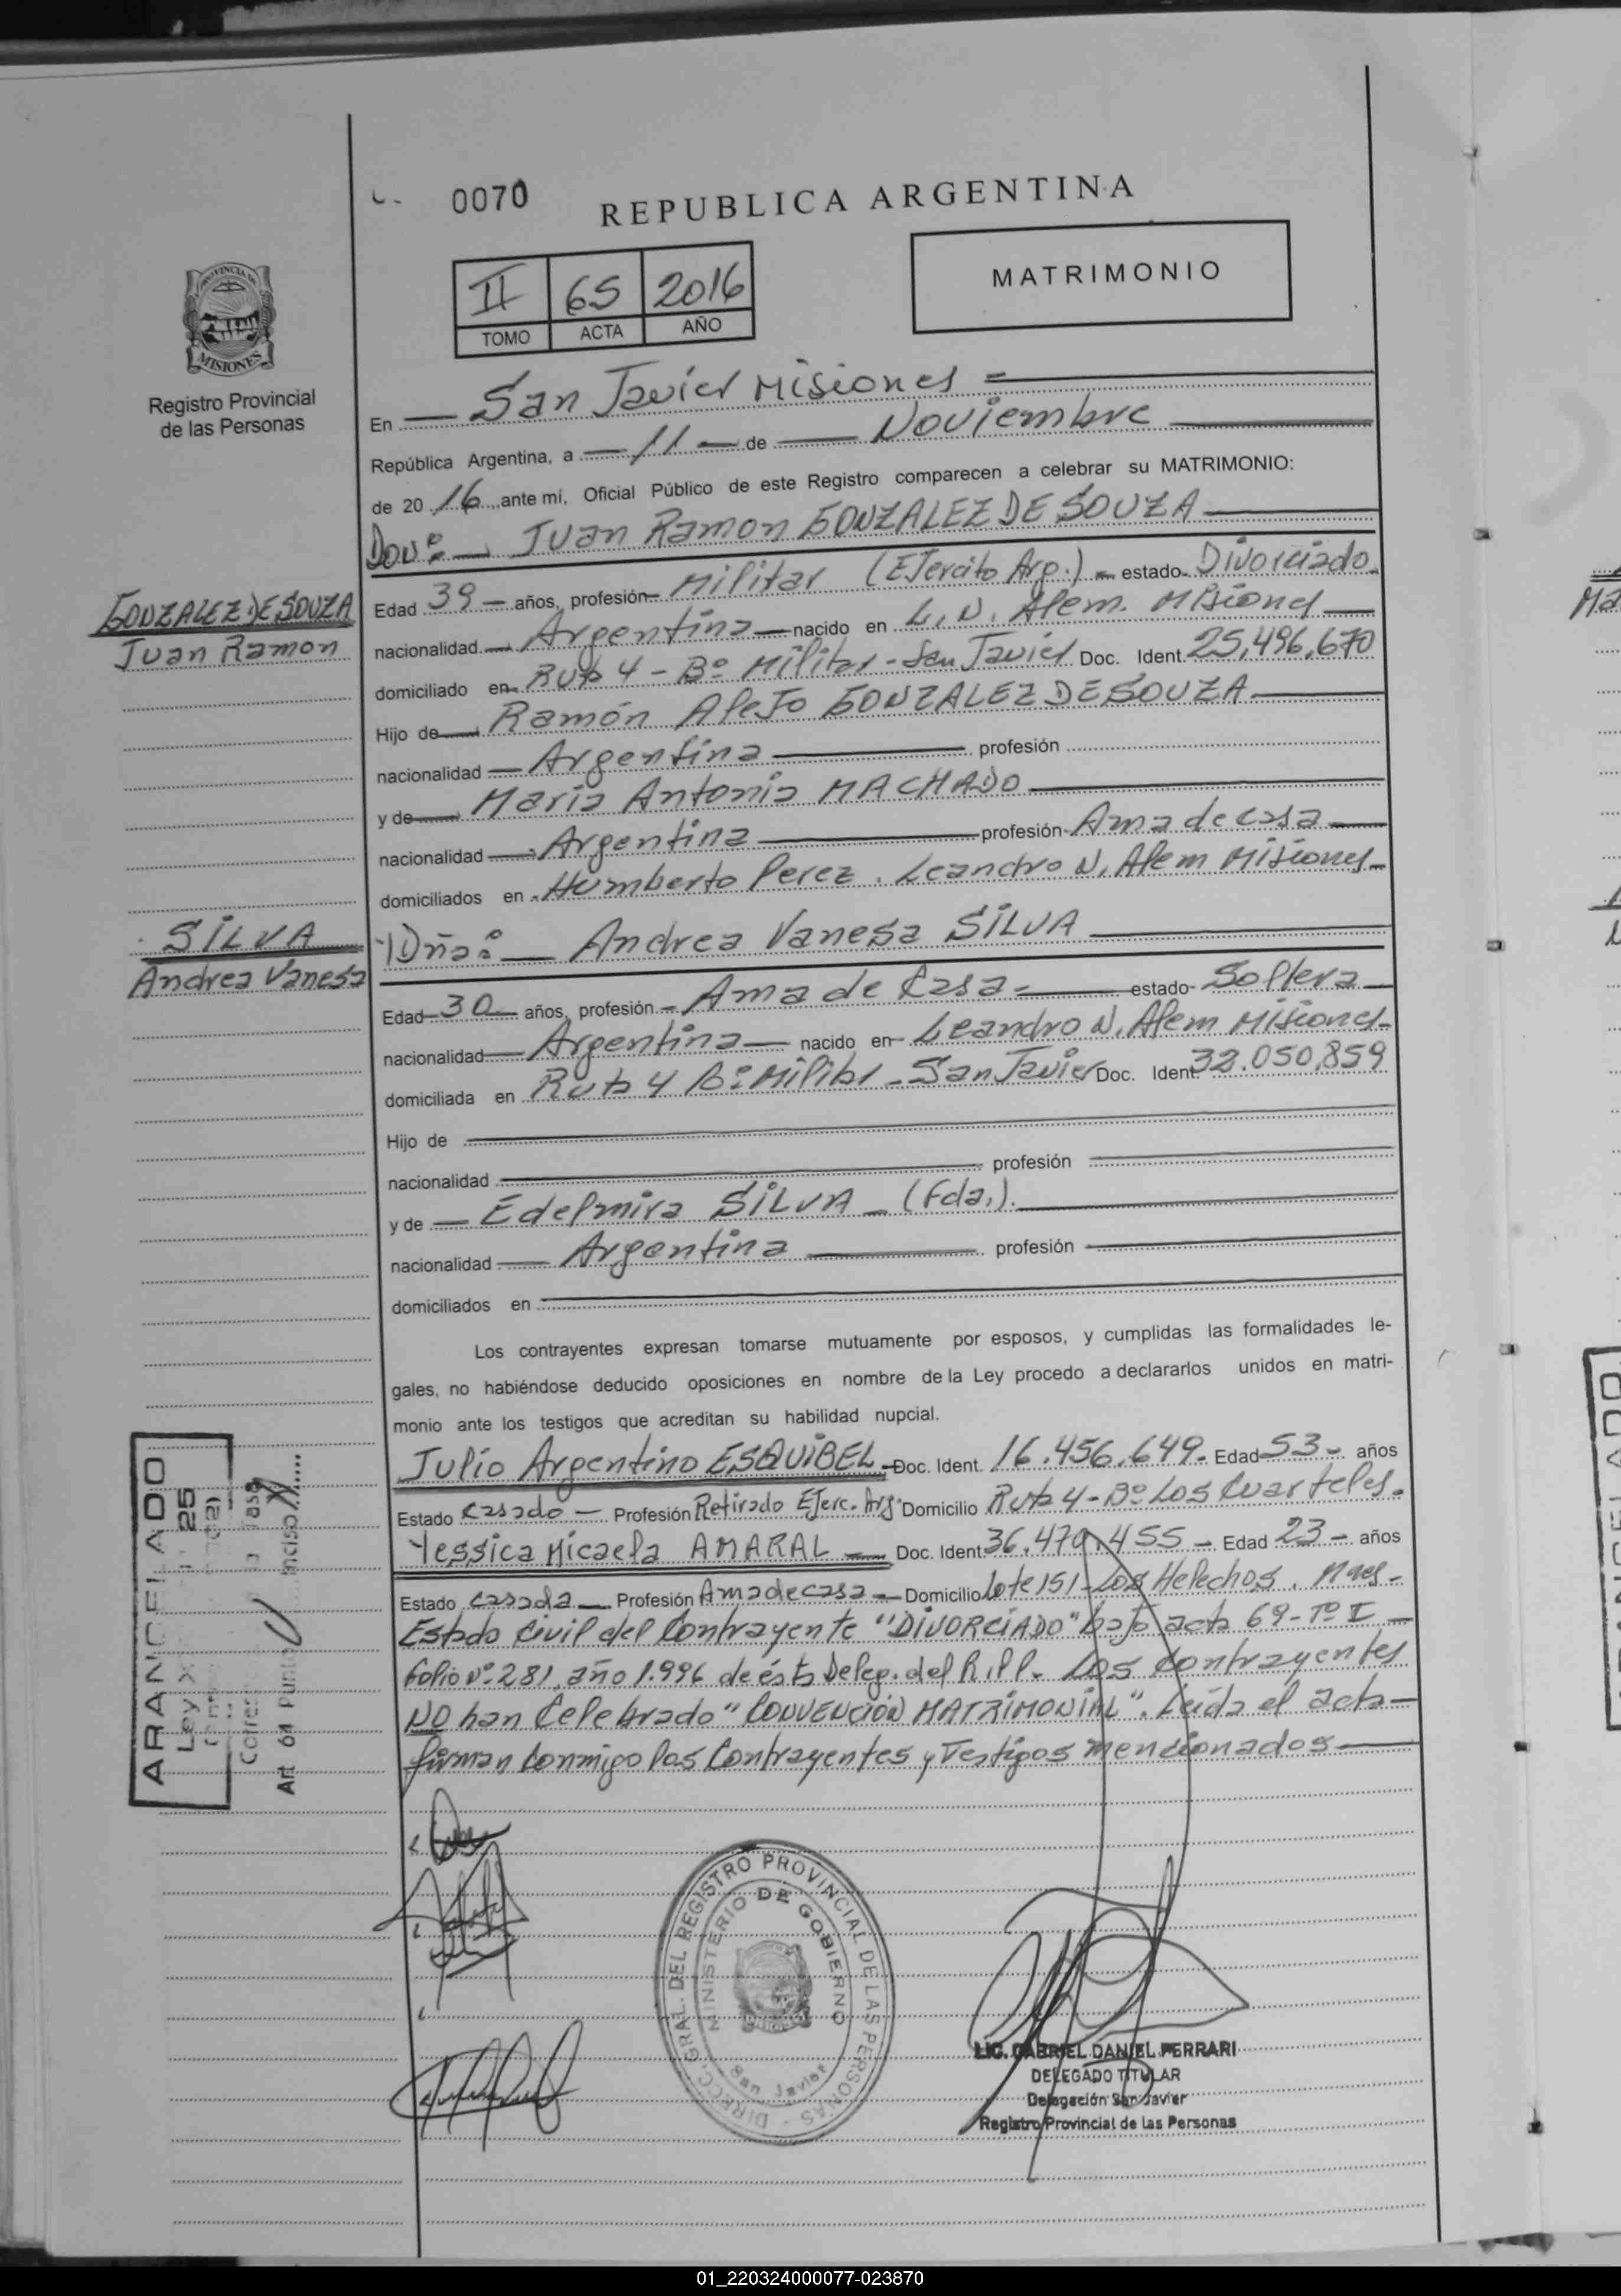 0070
REPUBLICA ARGENTINA
II 65 2016
TOMO ACTA AÑO
MATRIMONIO
PROVINCIA DE
MISIONES
Registro Provincial
de las Personas
En San Javier Misiones
República Argentina, a 11 de Noviembre
de 2016 ante mí, Oficial Público de este Registro comparecen a celebrar su MATRIMONIO:
Don: Juan Ramon GONZALEZ DE SOUZA
GONZALEZ DE SOUZA
Juan Ramon
Edad 39 años, profesión Militar (Ejercito Arg.) estado Divorciado
nacionalidad Argentina nacido en L.N. Alem. Misiones
domiciliado en Ruta 4 - Bº Militar - San Javier Doc. Ident. 25,496,670
Hijo de Ramón Alejo GONZALEZ DE SOUZA
nacionalidad Argentina profesión
y de Maria Antonia MACHADO
nacionalidad Argentina profesión Ama de casa
domiciliados en Humberto Perez. Leandro N. Alem Misiones
SILVA
Andrea Vanesa
Dña: Andrea Vanesa SILVA
Edad 30 años, profesión Ama de Casa estado Soltera
nacionalidad Argentina nacido en Leandro N. Alem Misiones
domiciliada en Ruta 4 Bº Militar - San Javier Doc. Ident. 32.050,859
Hijo de
nacionalidad profesión
y de Edelmira SILVA (Fda.).
nacionalidad Argentina profesión
domiciliados en
Los contrayentes expresan tomarse mutuamente por esposos, y cumplidas las formalidades le-
gales, no habiéndose deducido oposiciones en nombre de la Ley procedo a declararlos unidos en matri-
monio ante los testigos que acreditan su habilidad nupcial.
Julio Argentino ESQUIBEL Doc. Ident. 16.456.649 Edad 53 años
Estado Casado Profesión Retirado Ejerc. Arg. Domicilio Ruta 4 - Bº Los Cuarteles.
Yessica Micaela AMARAL Doc. Ident. 36.470.455 Edad 23 años
Estado casada Profesión Ama de casa Domicilio Lote 151 - Los Helechos. Mnes.
Estado Civil del Contrayente "DIVORCIADO" bajo acta 69 - Tº I
folio Nº 281, año 1.996 de ésta Deleg. del R.P.P. Los Contrayentes
NO han Celebrado "CONVENCIÓN MATRIMONIAL". Leída el acta
firman conmigo los Contrayentes y Testigos mencionados
ARANCELADO
Ley X 25
Art Punto inciso
DIRECC. GRAL. DEL REGISTRO PROVINCIAL DE LAS PERSONAS
MINISTERIO DE GOBIERNO
San Javier
LIC. GABRIEL DANIEL FERRARI
DELEGADO TITULAR
Delegación San Javier
Registro Provincial de las Personas
01_220324000077-023870